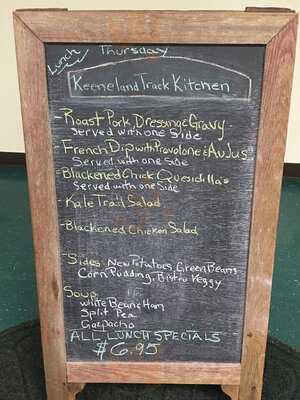 Lunch Thursday
Keeneland Track Kitchen
-Roast Pork, Dressing & Gravy-
Served with one Side
-French Dip with Provolone & Au Jus
Served with one side
-Blackened Chick Quesidilla's
Served with one Side
-Kale Trail Salad
-Blackened Chicken Salad
Sides- New Potatoes, Green Beans
Corn Pudding, Bistro Veggy
Soup
White Bean & Ham
Split Pea
Gazpacho
ALL LUNCH SPECIALS
$6.95